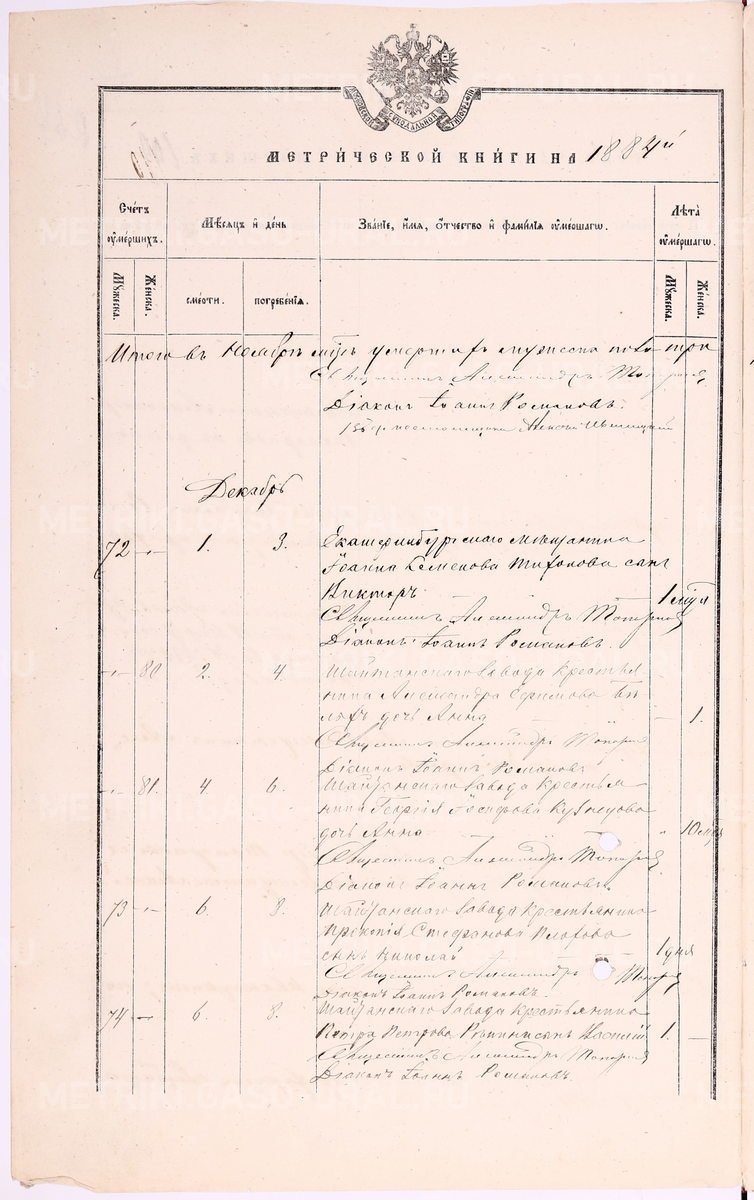 МЕТРИЧЕСКОЙ КНИГИ НА 1884й
Счетъ умершихъ.
Мѣсяцъ и день
Званіе, имя, отчество и фамилія умершагω.
Лѣта умершагω.
Мужеска.
Женска.
смерти.
погребенія.
Мужеска.
Женска.
Итого въ Ноябрѣ м-цѣ умершихъ мужеска пола три
Священникъ Александръ
Діаконъ Іоаннъ Романовъ.
Декабрь
72 -"- 1. 3. Екатеринбургскаго мѣщанина
Іоанна Семенова Тихонова сынъ
Викторъ — 1
Священникъ Александръ
Діаконъ Іоаннъ Романовъ.
-"- 80 2. 4. Шайтанскаго завода крестья-
нина Александра Ефимова
дочь Анна — 1.
Священникъ Александръ
Діаконъ Іоаннъ Романовъ
-"- 81. 4. 6. Шайтанскаго завода крестья-
нина Георгія Іосифова Кузнецова
дочь Анна — " 10
Священникъ Александръ
Діаконъ Іоаннъ Романовъ.
73 -"- 6. 8. Шайтанскаго завода крестьянина
Прокопія Стефанова
сынъ Николай — 1 дня
Священникъ Александръ
Діаконъ Іоаннъ Романовъ.
74 — 6. 8. Шайтанскаго завода крестьянина
Петра Петрова сынъ Василій 1. —
Священникъ Александръ
Діаконъ Іоаннъ Романовъ.